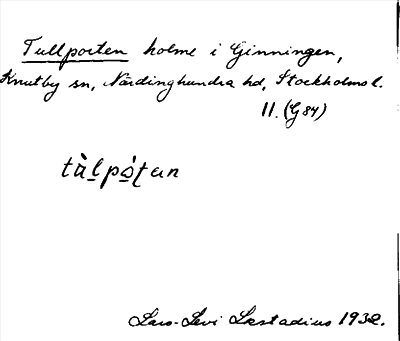 Tullporten holme i Ginningen,
Knutby sn, Närdinghundra hd, Stockholms l.
11. (G 84)
tàl̲pó̲ʈan
Lars-Levi Læstadius 1932.